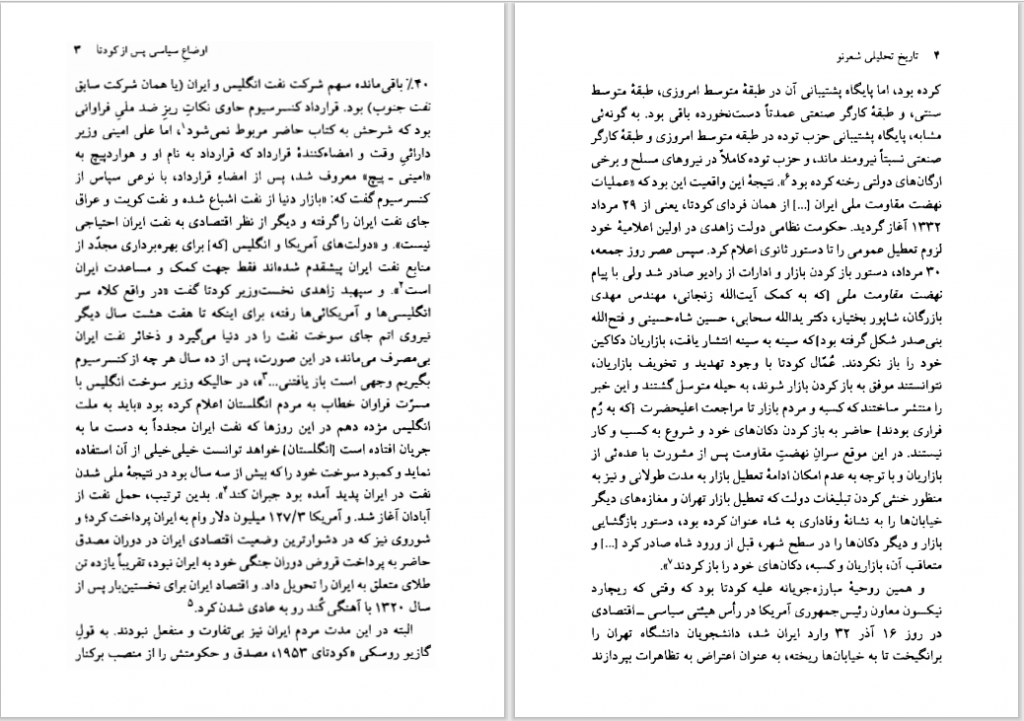 اوضاع سیاسی پس از کودتا ۳
۴۰٪ باقی‌مانده سهم شرکت نفت انگلیس و ایران (یا همان شرکت سابق
نفت جنوب) بود. قرارداد کنسرسیوم حاوی نکاتِ ریزِ ضد ملیِ فراوانی
بود که شرحش به کتاب حاضر مربوط نمی‌شود۱، اما علی امینی وزیر
دارائیِ وقت و امضاءکنندهٔ قرارداد که قرارداد به نام او و هواردپیچ به
«امینی ـ پیچ» معروف شد، پس از امضاءِ قرارداد، با نوعی سپاس از
کنسرسیوم گفت که: «بازار دنیا از نفت اشباع شده و نفت کویت و عراق
جای نفت ایران را گرفته و دیگر از نظر اقتصادی به نفت ایران احتیاجی
نیست». و «دولت‌های آمریکا و انگلیس [که] برای بهره‌برداری مجدّد از
منابع نفت ایران پیشقدم شده‌اند فقط جهت کمک و مساعدت ایران
است۲». و سپهبد زاهدی نخست‌وزیر کودتا گفت «در واقع کلاه سر
انگلیسی‌ها و آمریکائی‌ها رفته، برای اینکه تا هفت هشت سال دیگر
نیروی اتم جای سوخت نفت را در دنیا می‌گیرد و ذخائر نفت ایران
بی‌مصرف می‌ماند، در این صورت، پس از ده سال هر چه از کنسرسیوم
بگیریم وجهی است باز یافتنی...۳»، در حالیکه وزیر سوخت انگلیس با
مسرّت فراوان خطاب به مردم انگلستان اعلام کرده بود «باید به ملت
انگلیس مژده دهم در این روزها که نفت ایران مجدداً به دست ما به
جریان افتاده است [انگلستان] خواهد توانست خیلی‌خیلی از آن استفاده
نماید و کمبود سوخت خود را که بیش از سه سال بود در نتیجهٔ ملی شدن
نفت در ایران پدید آمده بود جبران کند۴». بدین ترتیب، حمل نفت از
آبادان آغاز شد. و آمریکا ۱۲۷/۳ میلیون دلار وام به ایران پرداخت کرد؛ و
شوروی نیز که در دشوارترین وضعیت اقتصادی ایران در دوران مصدق
حاضر به پرداخت قروض دوران جنگی خود به ایران نبود، تقریباً یازده تن
طلای متعلق به ایران را تحویل داد. و اقتصاد ایران برای نخستین‌بار پس از
سال ۱۳۲۰ با آهنگی کُند رو به عادی شدن کرد.۵
البته در این مدت مردم ایران نیز بی‌تفاوت و منفعل نبودند. به قول
گازیو روسکی «کودتای ۱۹۵۳، مصدق و حکومتش را از منصب برکنار
۴ تاریخ تحلیلی شعرنو
کرده بود، اما پایگاه پشتیبانی آن در طبقهٔ متوسط امروزی، طبقهٔ متوسط
سنتی، و طبقهٔ کارگر صنعتی عمدتاً دست‌نخورده باقی بود. به گونه‌ئی
مشابه، پایگاه پشتیبانی حزب توده در طبقه متوسط امروزی و طبقهٔ کارگر
صنعتی نسبتاً نیرومند ماند، و حزب توده کاملاً در نیروهای مسلح و برخی
ارگان‌های دولتی رخنه کرده بود۶». نتیجهٔ این واقعیت این بود که «عملیات
نهضت مقاومت ملی ایران [...] از همان فردای کودتا، یعنی از ۲۹ مرداد
۱۳۳۲ آغاز گردید. حکومت نظامی دولت زاهدی در اولین اعلامیهٔ خود
لزوم تعطیل عمومی را تا دستور ثانوی اعلام کرد. سپس عصر روز جمعه،
۳۰ مرداد، دستور باز کردن بازار و ادارات از رادیو صادر شد ولی با پیام
نهضت مقاومت ملی [که به کمک آیت‌الله زنجانی، مهندس مهدی
بازرگان، شاپور بختیار، دکتر یدالله سحابی، حسین شاه‌حسینی و فتح‌الله
بنی‌صدر شکل گرفته بود] که سینه به سینه انتشار یافت، بازاریان دکاکین
خود را باز نکردند. عُمّال کودتا با وجود تهدید و تخویف بازاریان،
نتوانستند موفق به باز کردن بازار شوند، به حیله متوسل گشتند و این خبر
را منتشر ساختند که کسبه و مردم بازار تا مراجعت اعلیحضرت [که به رُم
فراری بودند] حاضر به باز کردن دکان‌های خود و شروع به کسب و کار
نیستند. در این موقع سرانِ نهضتِ مقاومت پس از مشورت با عده‌ئی از
بازاریان و با توجه به عدم امکان ادامهٔ تعطیل بازار به مدت طولانی و نیز به
منظور خنثی کردن تبلیغات دولت که تعطیل بازار تهران و مغازه‌های دیگر
خیابان‌ها را به نشانهٔ وفاداری به شاه عنوان کرده بود، دستور بازگشایی
بازار و دیگر دکان‌ها را در سطح شهر، قبل از ورود شاه صادر کرد [...] و
متعاقب آن، بازاریان و کسبه، دکان‌های خود را باز کردند۷».
و همین روحیهٔ مبارزه‌جویانه علیه کودتا بود که وقتی که ریچارد
نیکسون معاون رئیس‌جمهوری آمریکا در رأس هیئتی سیاسی ـ اقتصادی
در روز ۱۶ آذر ۳۲ وارد ایران شد، دانشجویان دانشگاه تهران را
برانگیخت تا به خیابان‌ها ریخته، به عنوان اعتراض به تظاهرات بپردازند